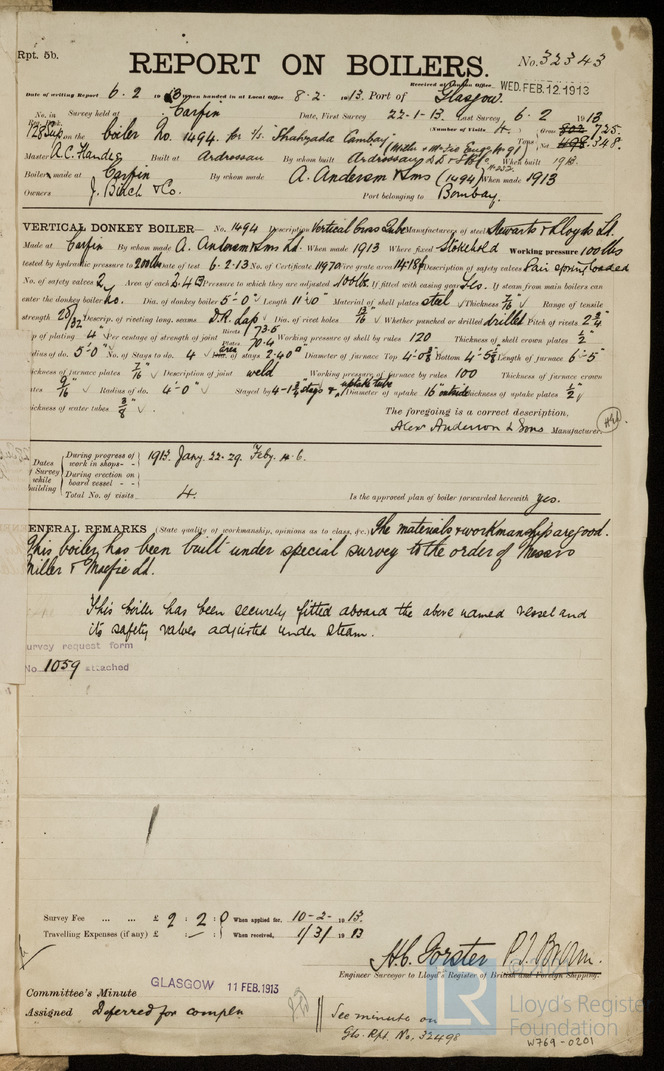 Rpt. 5b.
REPORT ON BOILERS.
No. 32343
Received at London Office WED. FEB. 12 1913
Date of writing Report 6.2 1913 When handed in at Local Office 8.2.1913. Port of Glasgow.
No. in Survey held at Carfin Date, First Survey 22-1-13. Last Survey 6.2 1913
Reg. Book. (Number of Visits 4.)
128 Sup on the boiler No. 1494. for Shahzada Cambay Tons Gross 725.
Net 348.
Master A.C. Built at Ardrossan By whom built Ardrossan When built 1913.
Boiler made at Carfin By whom made A. Anderson & Sons (1494) When made 1913
Owners J. & Co. Port belonging to Bombay.
VERTICAL DONKEY BOILER— No. 1494 Description Vertical Cross Tube Manufacturers of steel Stewarts & Lloyds Ld.
Made at Carfin By whom made A. Anderson & Sons Ld. When made 1913 Where fixed Stokehold Working pressure 100 lbs
tested by hydraulic pressure to 200 lbs Date of test 6.2.13 No. of Certificate 11970 Fire grate area 14.18 Description of safety valves Pair spring loaded
No. of safety valves 2 Area of each 2.43 Pressure to which they are adjusted 100 lbs. If fitted with easing gear Yes. If steam from main boilers can
enter the donkey boiler No. Dia. of donkey boiler 5'-0" Length 11'-0" Material of shell plates steel Thickness 7/16 Range of tensile
strength 28/32 Descrip. of riveting long. seams D.R. Lap Dia. of rivet holes 13/16 Whether punched or drilled drilled Pitch of rivets 2 3/4
p of plating 4" Per centage of strength of joint Rivets 73.5 Plates 70.4 Working pressure of shell by rules 120 Thickness of shell crown plates 1/2"
adius of do. 5'-0" No. of Stays to do. 4 area of stays 2.40" Diameter of furnace Top 4'-0 3/8 Bottom 4'-5 5/8 Length of furnace 6'-5"
ickness of furnace plates 7/16 Description of joint weld Working pressure of furnace by rules 100 Thickness of furnace crown
ates 9/16 Radius of do. 4'-0" Stayed by 4-1 3/4 stays & uptake tube Diameter of uptake 16" outside Thickness of uptake plates 1/2
ickness of water tubes 3/8"
The foregoing is a correct description,
Alex Anderson & Sons Manufacturer.
Dates of Survey while building
During progress of work in shops - - 1913. Jany. 22-29. Feby. 4. 6.
During erection on board vessel - -
Total No. of visits 4. Is the approved plan of boiler forwarded herewith yes.
ENERAL REMARKS (State quality of workmanship, opinions as to class, &c.) The materials & workmanship are good.
This boiler has been built under special survey to the order of Messrs
Miller & Macfie Ld.
This boiler has been securely fitted aboard the above named vessel and
its safety valves adjusted under steam.
urvey request form
No. 1059 attached
Survey Fee ... ... £ 2 : 2 : 0 When applied for, 10-2-1913.
Travelling Expenses (if any) £ : — : When received, 1/3/1913
H.C. Forster
Engineer Surveyor to Lloyd's Register of British and Foreign Shipping.
Committee's Minute GLASGOW 11 FEB. 1913
Assigned Deferred for compln
See minute on
Gls. Rpt. No. 32498
LR
Lloyd's Register
Foundation
W769-0201